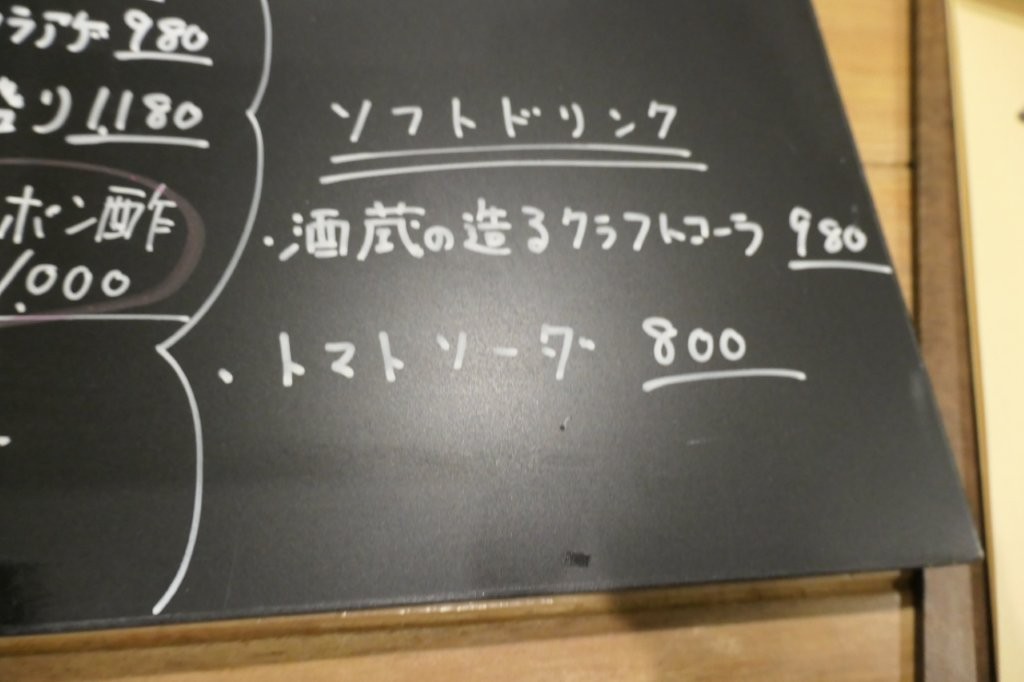 ラアゲ 980
盛り 1,180
ポン酢
1,000
ソフトドリンク
・酒蔵の造るクラフトコーラ 980
・トマトソーダ 800